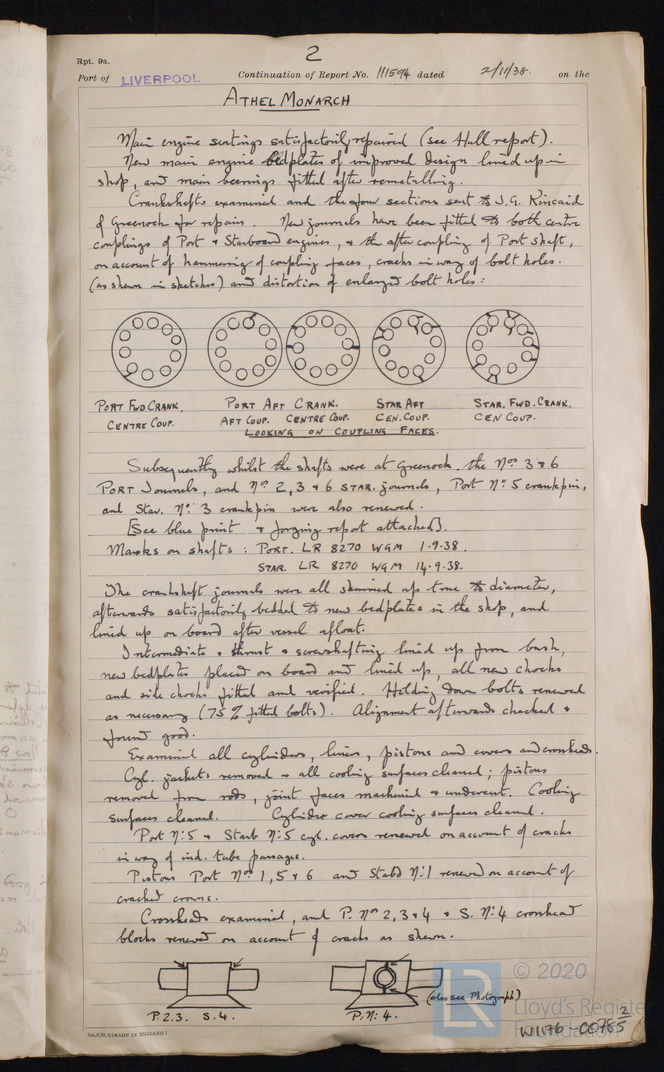 2
Rpt. 9a.
Port of LIVERPOOL Continuation of Report No. 111594 dated 2/11/38. on the
ATHEL MONARCH
Main engine seatings satisfactorily repaired (see Hull report).
New main engine bedplates of improved design lined up in
shop, and main bearings fitted after remetalling.
Crankshafts examined and the four sections sent to J.G. Kincaid
of Greenock for repairs. New journals have been fitted to both centre
couplings of Port & Starboard engines, & the after coupling of Port shaft,
on account of hammering of coupling faces, cracks in way of bolt holes.
(as shewn in sketches) and distortion of enlarged bolt holes:
PORT FWD CRANK. PORT AFT CRANK. STAR AFT STAR. FWD. CRANK.
CENTRE COUP. AFT COUP. CENTRE COUP. CEN. COUP. CEN COUP.
LOOKING ON COUPLING FACES.
Subsequently whilst the shafts were at Greenock the Nos 3 & 6
PORT Journals, and Nos 2, 3 & 6 STAR. journals, Port No 5 crankpin,
and Star. No 3 crankpin were also renewed.
[See blue print & forging report attached].
Marks on shafts: PORT. LR 8270 WGM 1.9.38.
STAR. LR 8270 WGM 14.9.38.
The crankshaft journals were all skimmed up true to diameter,
afterwards satisfactorily bedded to new bedplates in the shop, and
lined up on board after vessel afloat.
Intermediate & thrust & screwshafting lined up from bush,
new bedplates placed on board and lined up, all new chocks
and side chocks fitted and verified. Holding down bolts renewed
as necessary (75% fitted bolts). Alignment afterwards checked &
found good.
Examined all cylinders, liners, pistons and covers and crossheads.
Cyl. jackets removed & all cooling surfaces cleaned; pistons
removed from rods, joint faces machined & undercut. Cooling
surfaces cleaned. Cylinder cover cooling surfaces cleaned.
Port No 5 & Starb No 5 cyl. covers renewed on account of cracks
in way of ind. tube passages.
Pistons Port Nos 1, 5 & 6 and Starbd No 1 renewed on account of
cracked crowns.
Crossheads examined, and P. Nos 2, 3 & 4 & S. No 4 crosshead
blocks renewed on account of cracks as shewn.
(also see Photograph)
P. 2. 3. S. 4. P. No 4.
(MADE IN ENGLAND.)
LR
© 2020
Lloyd's Register
Foundation
W1176-0075 2/5